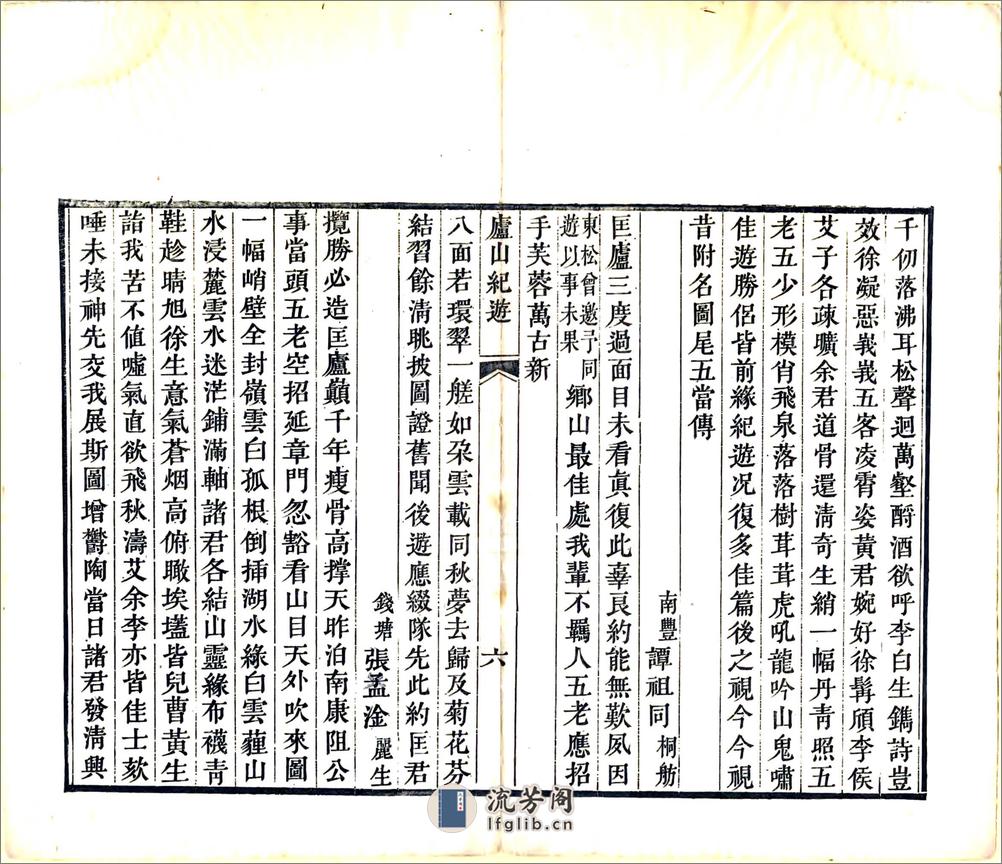 千仞落沸耳松聲迴萬壑酹酒欲呼李白生鐫詩豈
效徐凝惡峩峩五客凌霄姿黃君婉好徐髯頎李侯
艾子各疎曠余君道骨還淸奇生綃一幅丹靑照五
老五少形模肖飛泉落落樹茸茸虎吼龍吟山鬼嘯
佳遊勝侶皆前緣紀遊况復多佳篇後之視今今視
昔附名圖尾五當傳
南豐譚祖同桐舫
匡廬三度過面目未看眞復此辜良約能無歎夙因
東松曾邀予同遊以事未果鄉山最佳處我輩不羈人五老應招
手芙蓉萬古新
廬山紀遊 六
八面若環翠一艖如朶雲載同秋夢去歸及菊花芬
結習餘淸眺披圖證舊聞後遊應綴隊先此約匡君
錢塘張孟淦麗生
攬勝必造匡廬巔千年瘦骨高撑天昨泊南康阻公
事當頭五老空招延章門忽豁看山目天外吹來圖
一幅峭壁全封嶺雲白孤根倒揷湖水綠白雲蘕山
水浸麓雲水迷茫鋪滿軸諸君各結山靈緣布襪靑
鞋趁晴旭徐生意氣蒼烟高俯瞰埃壒皆兒曹黃生
詣我苦不値噓氣直欲飛秋濤艾余李亦皆佳士欬
唾未接神先交我展斯圖增鬱陶當日諸君發淸興
流芳阁
lfglib.cn